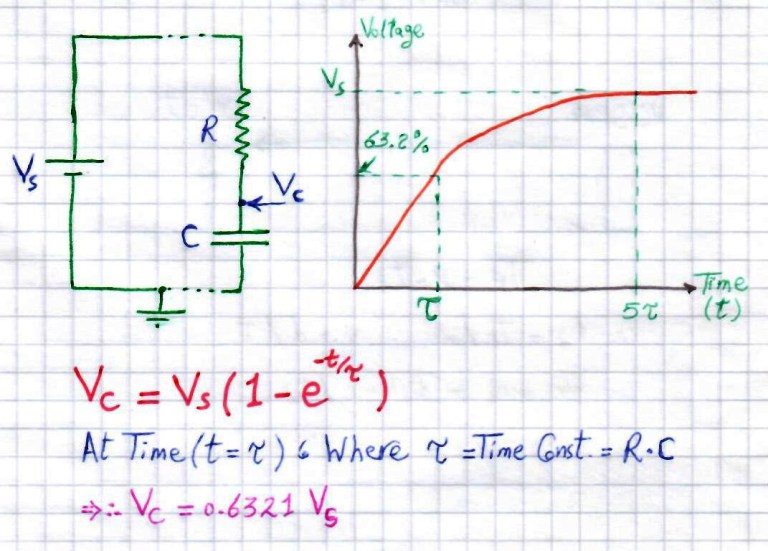 Voltage
Vs
63.2%
R
Vs
Vc
C
τ
5τ
Time
(t)
Vc = Vs (1 - e^-t/τ)
At Time (t = τ) , Where τ = Time Const. = R.C
⇒∴ Vc = 0.6321 Vs